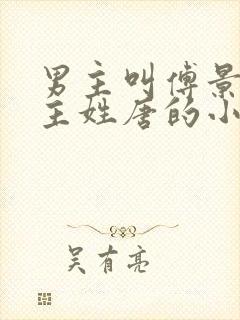 男主叫傅景
主姓唐的小
吴有亮